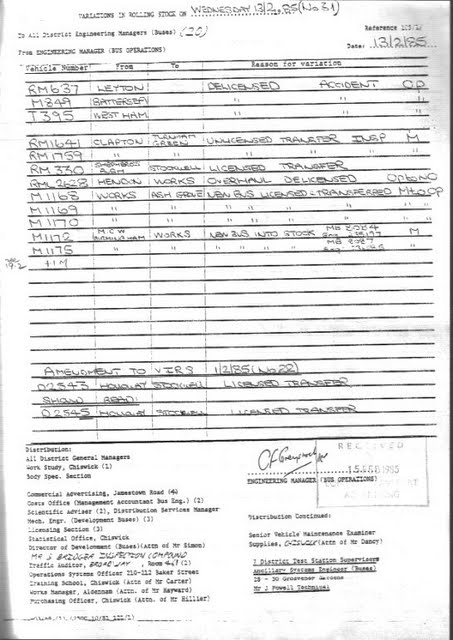 VARIATIONS IN ROLLING STOCK ON WEDNESDAY 13/2/85 (No 31)
To All District Engineering Managers (Buses) (20)
Reference
From ENGINEERING MANAGER (BUS OPERATIONS)
Date: 13/2/85
Vehicle Number From To Reason for variation
RM637 LEYTON DELICENSED ACCIDENT OP
M849 BATTERSEA " " "
T395 WEST HAM " " "
RM1641 CLAPTON TURNHAM GREEN UNLICENSED TRANSFER INSP M
RM1759 " " " " " "
RM330 STOCKWELL LICENSED TRANSFER
RML2628 HENDON WORKS OVERHAUL DELICENSED OP to NO
M1168 WORKS ASH GROVE NEW BUS LICENSED & TRANSFERRED M to OP
M1169 " " " " "
M1170 " " " " "
M1172 M.C.W BIRMINGHAM WORKS NEW BUS INTO STOCK M
M1175 " " " " " " "
19.2 +1M
AMENDMENT TO VIRS 1/2/85 (No 22)
D2543 HOLLOWAY STOCKWELL LICENSED TRANSFER
SHOULD READ:
D2545 HOLLOWAY STOCKWELL LICENSED TRANSFER
Distribution:
All District General Managers
Work Study, Chiswick (1)
Body Spec. Section
RECEIVED
15 FEB 1985
ENGINEERING MANAGER (BUS OPERATIONS)
Commercial Advertising, Jamestown Road
Costs Office (Management Accountant Bus Eng.) (2)
Scientific Adviser (2), Distribution Services Manager
Mech. Engr. (Development Buses) (3)
Licensing Section (3)
Statistical Office, Chiswick
Director of Development (Buses)(Attn of Mr Simon)
INSPECTION COMPOUND
Traffic Auditor, BROADWAY, Room
Operations Systems Officer 210-212 Baker Street
Training School, Chiswick (Attn of Mr Carter)
Works Manager, Aldenham (Attn of Mr Hayward)
Purchasing Officer, Chiswick (Attn. of Mr Hillier)
Distribution Continued:
Senior Vehicle Maintenance Examiner
Supplies, CHISWICK (Attn of Mr Dancy)
7 District Test Station Supervisors
Ancillary Systems Engineer (Buses)
28 - 30 Grosvenor Gardens
Mr J Powell Technical